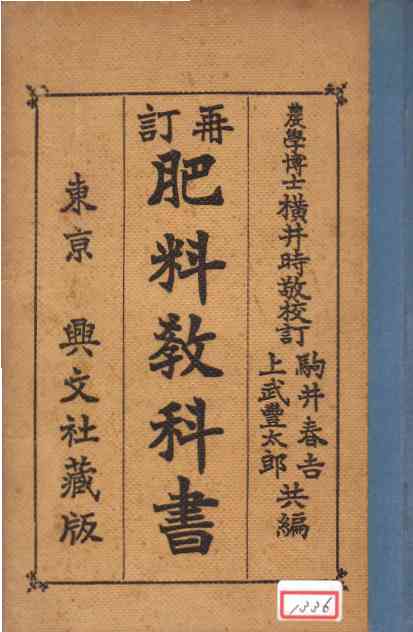 農學博士横井時敬校訂
駒井春吉
上武豐太郎
共編
再訂
肥料教科書
東京 興文社藏版
1336